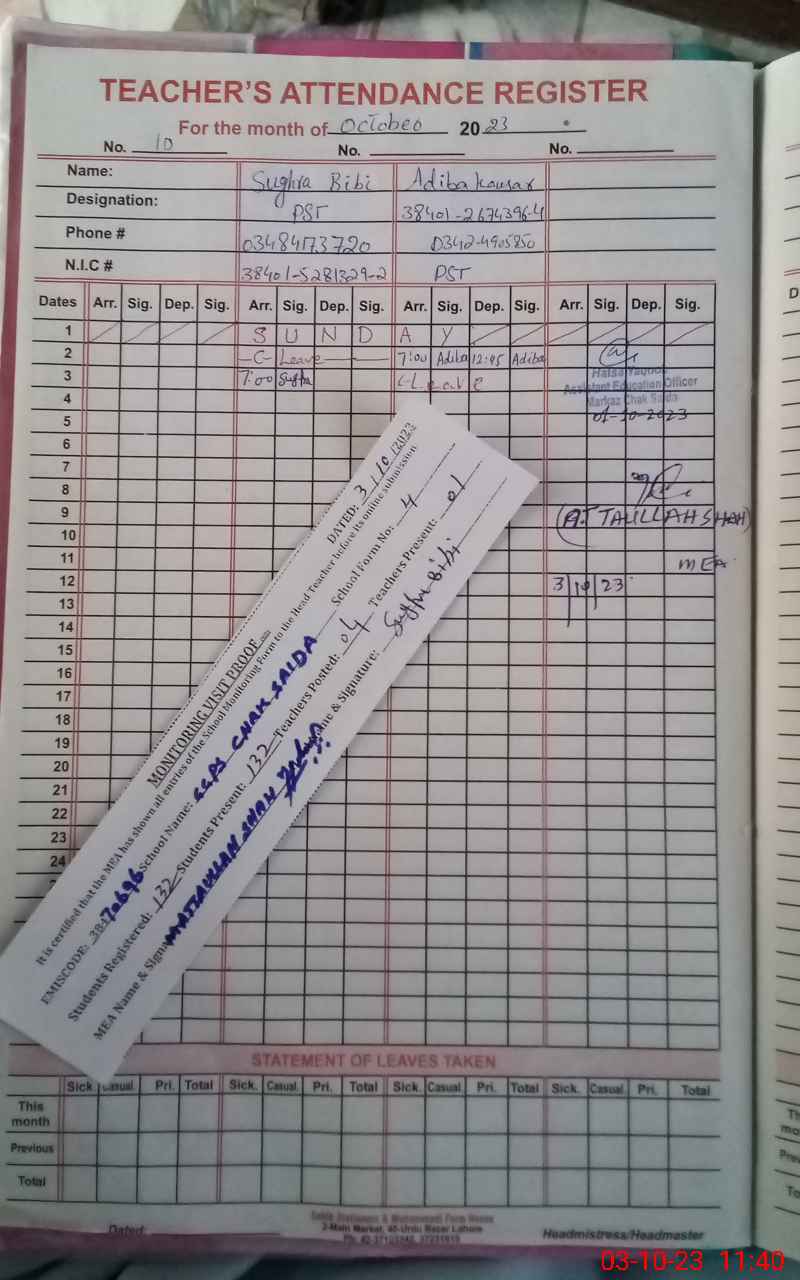 TEACHER'S ATTENDANCE REGISTER
For the month of October 2023
No. 10 No. No.
Name: Sughra Bibi Adiba Kousar
Designation: PST 38401-2674396-4
Phone # 03484173720 0342-4905850
N.I.C # 38401-5281329-2 PST
Dates Arr. Sig. Dep. Sig. Arr. Sig. Dep. Sig. Arr. Sig. Dep. Sig. Arr. Sig. Dep. Sig.
1 S U N D A Y
2 C-Leave 7:00 Adiba 12:45 Adiba
3 7:00 Sughra C-Leave
Hafsa Yaqoob
Assistant Education Officer
Markaz Chak Saida
01-10-2023
4
5
6
7
8
9 (ATTAULLAH SHAH)
10
11 MEA
12 3|10|23
13
14
15
16
17
18
19
20
21
22
23
24
MONITORING VISIT PROOF DATED: 3/10/2023
It is certified that the MEA has shown all entries of the School Monitoring Form to the Head Teacher before its online submission
EMISCODE: School Name: GGPS CHAK SAIDA School Form No: 4
Students Registered: 132 Students Present: 132 Teachers Posted: 04 Teachers Present: 01
MEA Name & Signa ATTAULLAH SHAH me & Signature: Sughra Bibi
STATEMENT OF LEAVES TAKEN
Sick. Casual. Pri. Total Sick. Casual. Pri. Total Sick. Casual. Pri. Total Sick. Casual. Pri. Total
This month
Previous
Total
Dated: 2-Main Market, 40-Urdu Bazar Lahore Headmistress/Headmaster
03-10-23 11:40